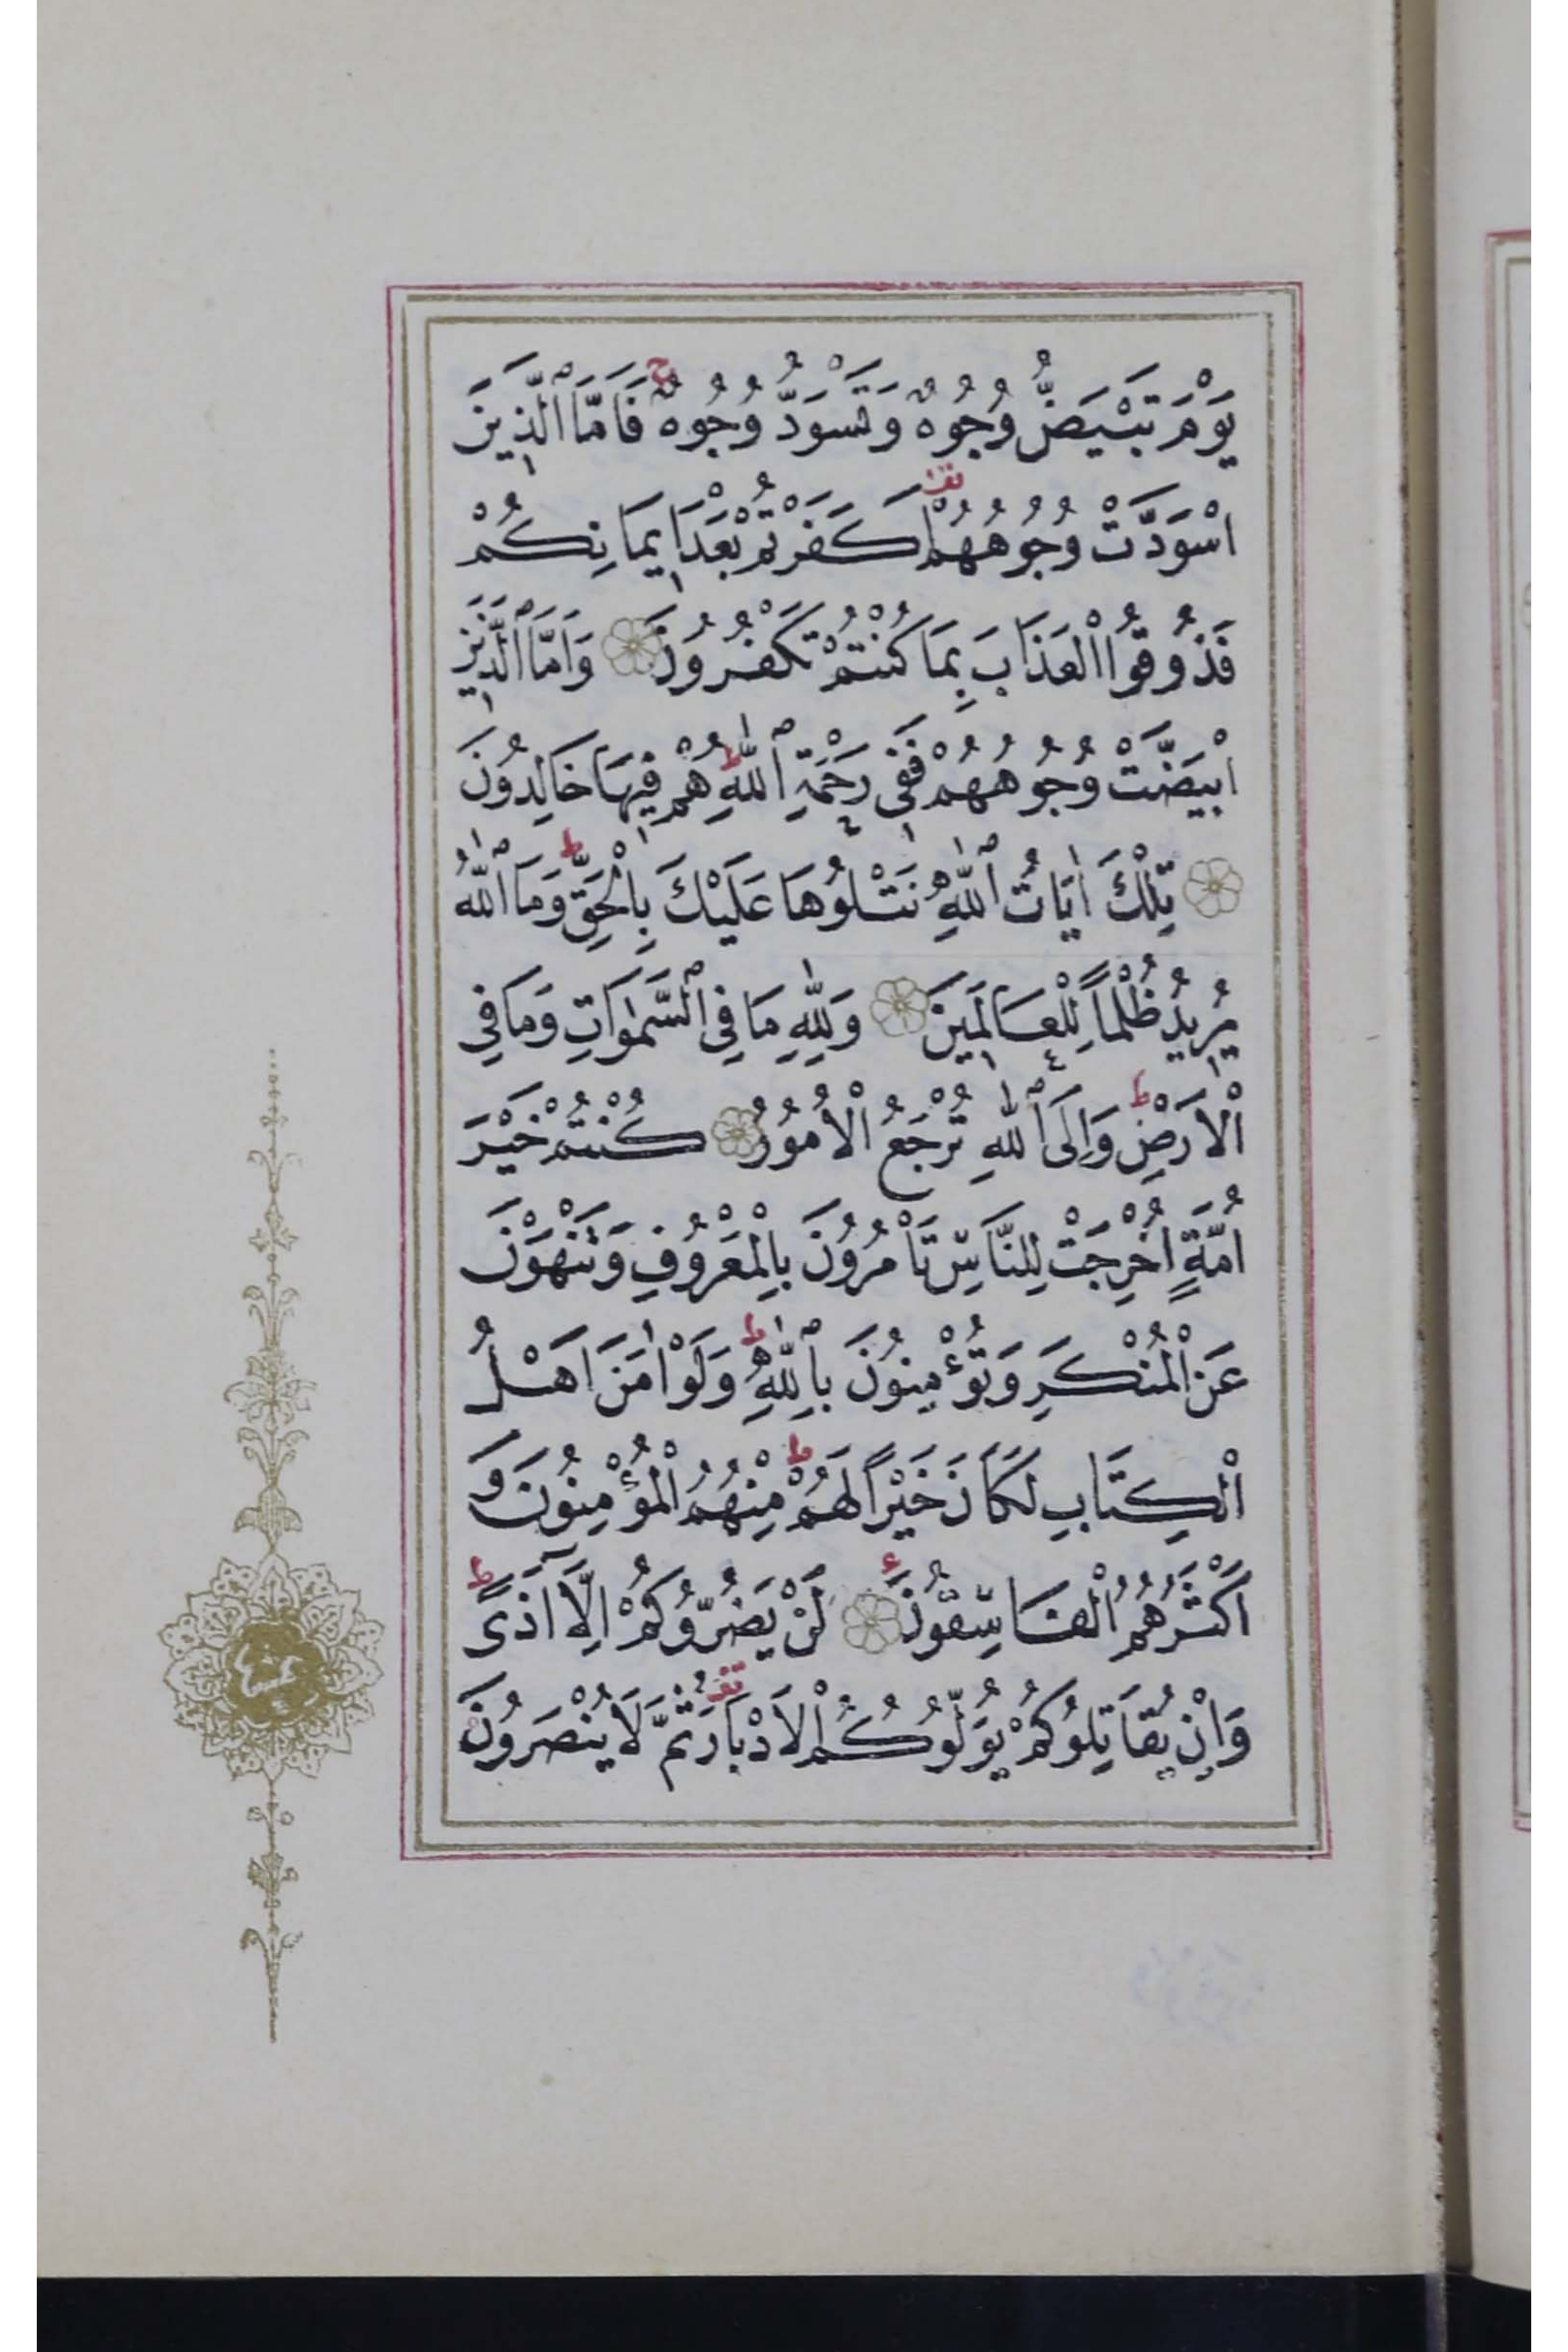 يَوْمَ تَبْيَضُّ وُجُوهٌ وَتَسْوَدُّ وُجُوهٌ ج فَاَمَّا الَّذِينَ
اسْوَدَّتْ وُجُوهُهُمْ قف اَكَفَرْتُمْ بَعْدَ اِيمَانِكُمْ
فَذُوقُوا الْعَذَابَ بِمَا كُنْتُمْ تَكْفُرُونَ وَاَمَّا الَّذِينَ
ابْيَضَّتْ وُجُوهُهُمْ فَفِى رَحْمَةِ اللّٰهِ ط هُمْ فِيهَا خَالِدُونَ
تِلْكَ اٰيَاتُ اللّٰهِ نَتْلُوهَا عَلَيْكَ بِالْحَقِّ ط وَمَا اللّٰهُ
يُرِيدُ ظُلْمًا لِلْعَالَمِينَ وَلِلّٰهِ مَا فِى السَّمٰوَاتِ وَمَا فِى
الْاَرْضِ ط وَاِلَى اللّٰهِ تُرْجَعُ الْاُمُورُ كُنْتُمْ خَيْرَ
اُمَّةٍ اُخْرِجَتْ لِلنَّاسِ تَاْمُرُونَ بِالْمَعْرُوفِ وَتَنْهَوْنَ
عَنِ الْمُنْكَرِ وَتُؤْمِنُونَ بِاللّٰهِ ط وَلَوْ اٰمَنَ اَهْلُ
الْكِتَابِ لَكَانَ خَيْرًا لَهُمْ ط مِنْهُمُ الْمُؤْمِنُونَ وَ
اَكْثَرُهُمُ الْفَاسِقُونَ ء لَنْ يَضُرُّوكُمْ اِلَّآ اَذًى ط
وَاِنْ يُقَاتِلُوكُمْ يُوَلُّوكُمُ الْاَدْبَارَ قف ثُمَّ لَا يُنْصَرُونَ